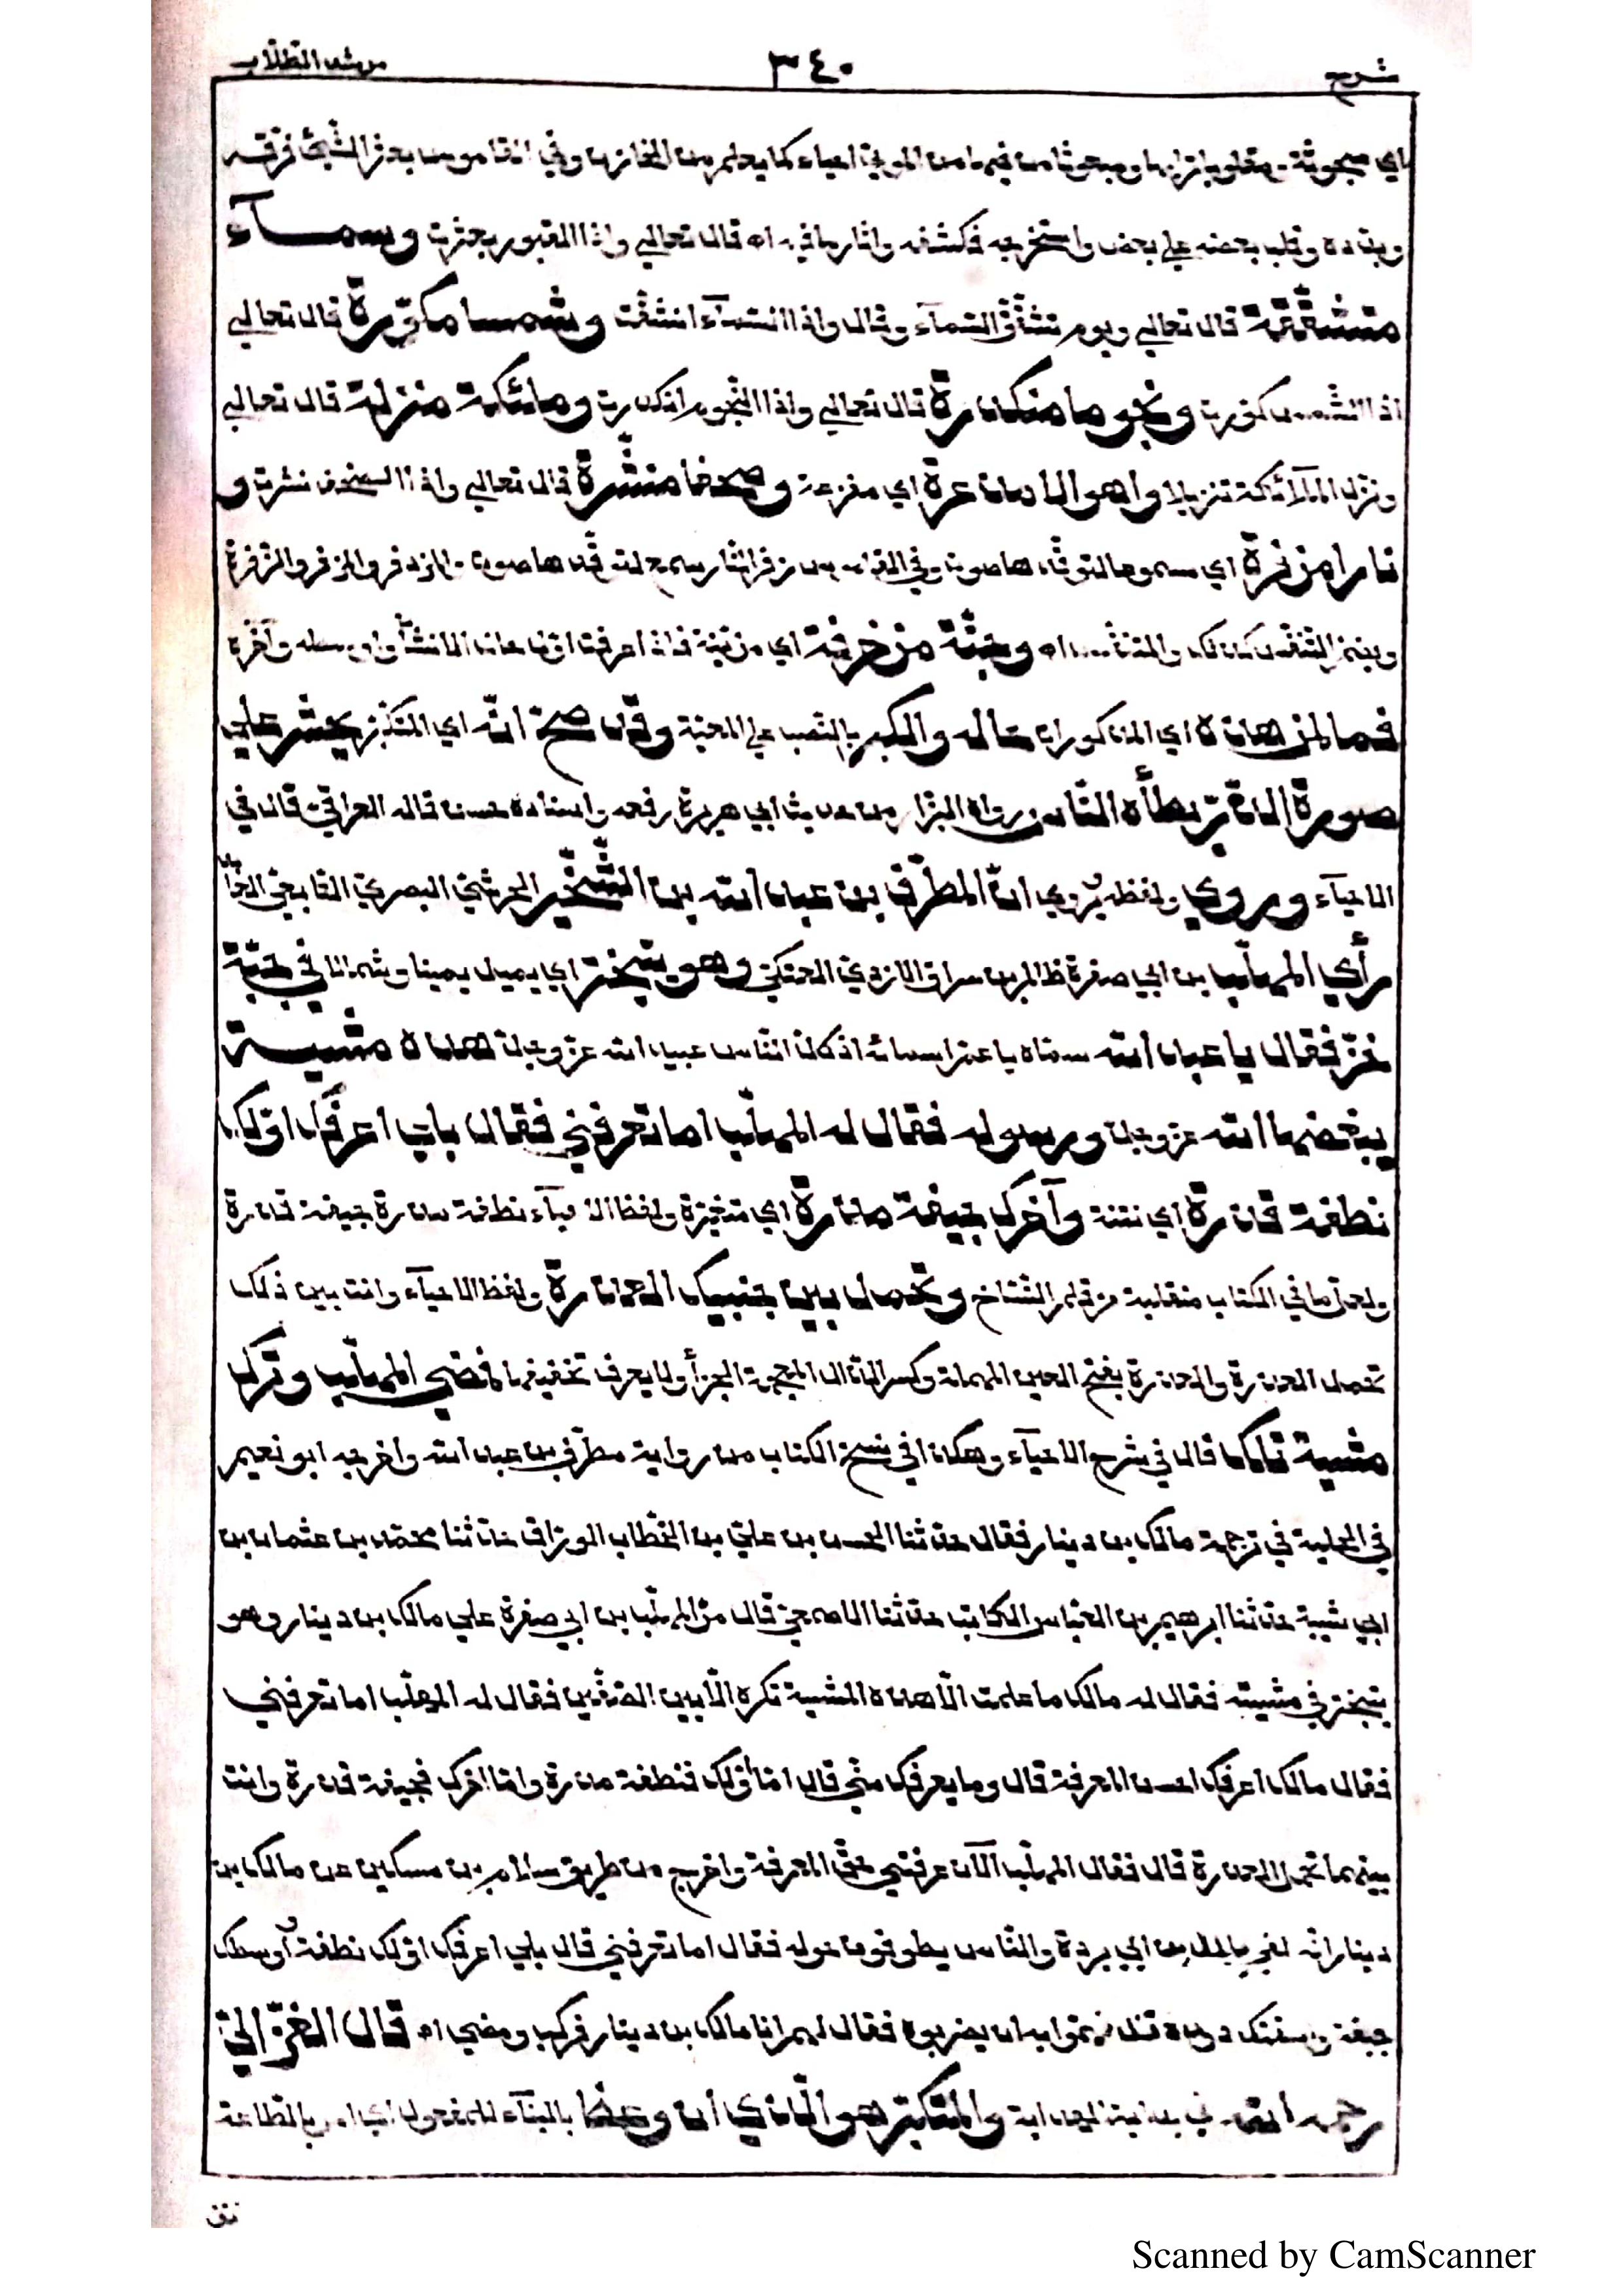 شرح ٣٤٠ مرشد الطلاب
اي مبحوثة ومقلوبا ترابها ومبعوثا من فيها من الموتى احياء كما يعلم من الخازن وفي القاموس بعثر الشّيئ فرّقه
وبدده وقلب بعضه علي بعض واستخرجه فكشفه واثار ما فيه اه قال تعالي واذا القبور بعثرت وسمآء
متشقّقة قال تعالي ويوم تشقّق السّمآء وقال واذا السّمآء انشقّت وشمسا مكوّرة قال تعالي
اذا الشّمس كوّرت ونجوما منكدرة قال تعالي واذا النّجوم انكدرت وملئكة منزلة قال تعالي
ونزل الملآئكة تنزيلا واهوالا ذاعرة اي مفزعة وصحفا منشّرة قال تعالي واذا الصّحف نشرت و
نارا مزفرة اي مسموعا لتوقّدها صوت وفي القاموس زفر النّار سمع لتوقّدها صوت والمزدفر والمزفر والزّفرة
ويضم التّنفّس كذلك والمتنفّس اه وجنّة مزخرفة اي مزيّنة فاذا عرفت انّ هذا الانشأ واوسطه وآخره
فما لمن هذه اي المذكورات حاله والكبر بالنّصب علي المعيّة وقد صحّ انّه اي المتكبّر يحشر علي
صورة الذّرّ يطأه النّاس رواه البزّار من حديث ابي هريرة رفعه واسناده حسن قاله العراقيّ قال في
الاحيآء وروي ولفظه يُروي انّ المطرّف بن عبد الله بن الشّخّير الحرشيّ البصريّ التّابعيّ
رأي المهلّب بن ابي صفرة ظالم بن سراق الازديّ العتكيّ وهو يتبختر اي يميل يمينا وشمالا في جبّة
خزّ فقال يا عبد الله سمّاه باعمّ اسمائه اذ كلّ النّاس عبيد الله عزّ وجلّ هذه مشية
يبغضها الله عزّ وجلّ ورسوله فقال له المهلّب اما تعرفني فقال بلي اعرفك اوّلك
نطفة قذرة اي نتنة وآخرك جيفة مذرة اي متغيّرة ولفظ الاحيآء نطفة مذرة جيفة قذرة
ولعلّ ما في الكتاب منقلبة من قلم النّسّاخ وتحمل بين جنبيك العذرة ولفظ الاحيآء وانت بين ذلك
تحمل العذرة والعذرة بفتح العين المهملة وكسر الذّال المعجمة الخرأ ولا يعرف تخفيفها فمضي المهلّب وترك
مشية تلك قال في شرح الاحيآء وهكذا في نسخ الكتاب من رواية مطرّف بن عبد الله واخرجه ابو نعيم
في الحلية في ترجمة مالك بن دينار فقال حدّثنا الحسن بن عليّ بن الخطّاب الورّاق حدّثنا محمّد بن عثمان بن
ابي شيبة حدّثنا ابرهيم بن العبّاس الكاتب حدّثنا الاصمعيّ قال مرّ المهلّب بن ابي صفرة علي مالك بن دينار وهو
يتبختر في مشيته فقال له مالك ما علمت الّا هذه المشية تكره الّا بين الصّفّين فقال له المهلّب اما تعرفني
فقال مالك اعرفك احسن المعرفة قال وما يعرفك منّي قال امّا اوّلك فنطفة مذرة وامّا اخرك فجيفة قذرة وانت
بينهما تحمل العذرة قال فقال المهلّب الآن عرفتني حقّ المعرفة واخرج من طريق سلام بن مسكين عن مالك بن
دينار انّه لقي بلال بن ابي بردة والنّاس يطوفون حوله فقال اما تعرفني قال بلي اعرفك اوّلك نطفة أوسطك
جيفة واسفلك دودة قال فهمّوا به ان يضربوه فقال لهم انا مالك بن دينار فركب ومضي اه قال الغزّاليّ
رحمه الله في بداية الهداية والمتكبّر هو الّذي ان وعظ بالبنآء للمفعول اي امر بالطّاعة